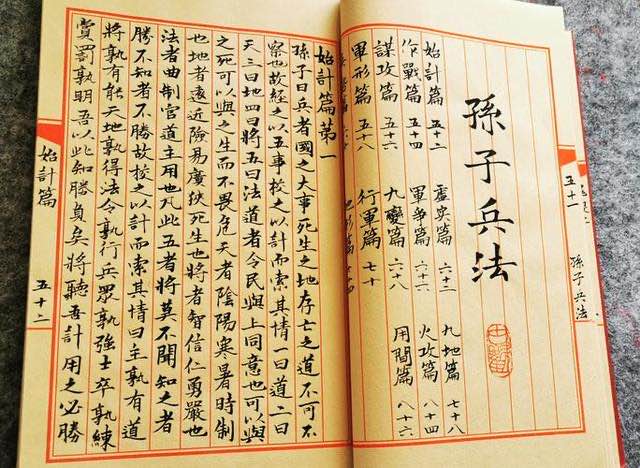 五十一
孫子兵法
孫子兵法
始計篇 五十二 虛實篇 六十二 九地篇 七十八
作戰篇 五十四 軍爭篇 六十六 火攻篇 八十四
謀攻篇 五十六 九變篇 六十八 用間篇 八十六
軍形篇 五十八 行軍篇 七十
始計篇第一
孫子曰兵者國之大事死生之地存亡之道不可不
察也故經之以五事校之以計而索其情一曰道二曰
天三曰地四曰將五曰法道者令民與上同意也可以與
之死可以與之生而不畏危天者陰陽寒暑時制
也地者遠近險易廣狹死生也將者智信仁勇嚴也
法者曲制官道主用也凡此五者將莫不聞知之者
勝不知者不勝故校之以計而索其情曰主孰有道
將孰有能天地孰得法令孰行兵眾孰強士卒孰練
賞罰孰明吾以此知勝負矣將聽吾計用之必勝
始計篇
五十二